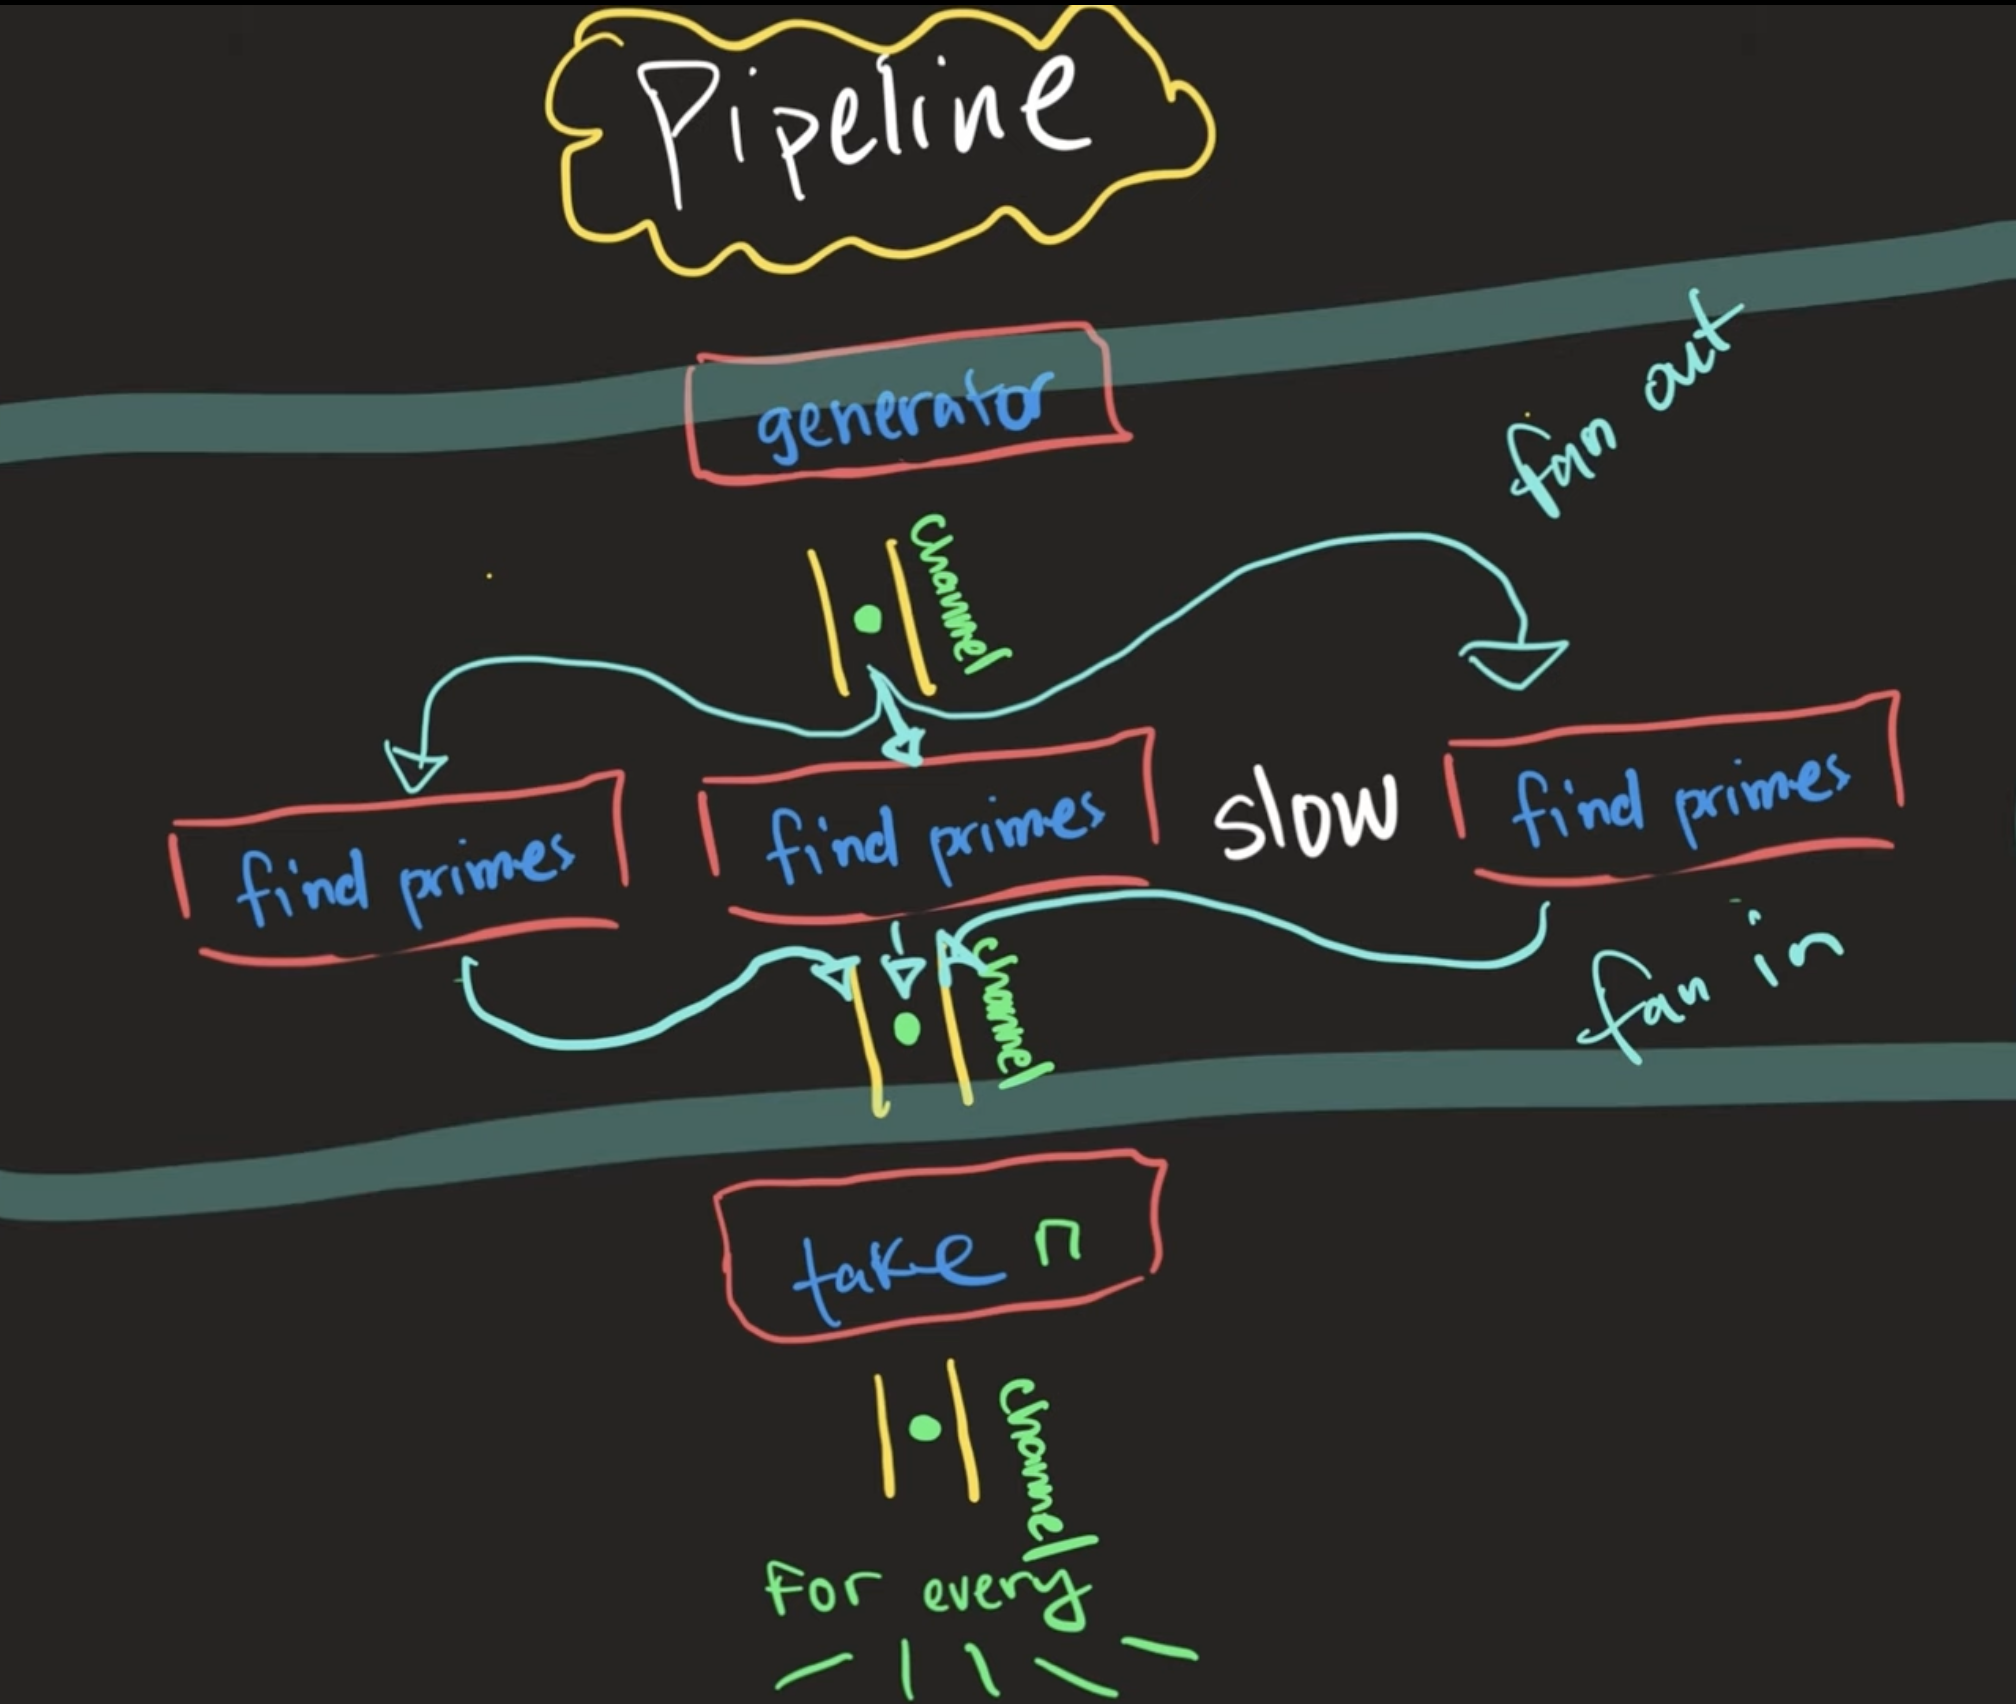 Pipeline
fan out
generator
channel
find primes
find primes
slow
find primes
channel
fan in
take n
channel
for every